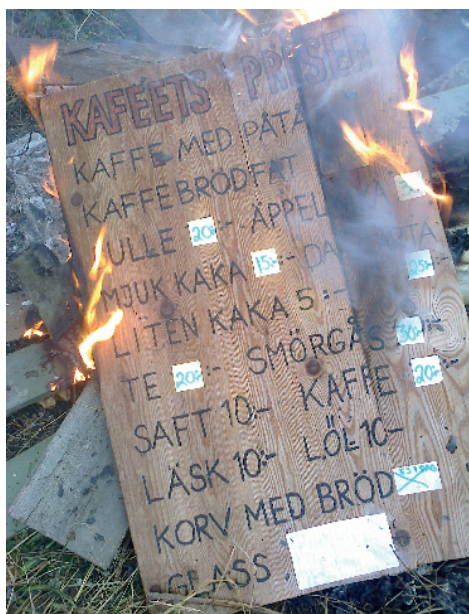 KAFÉETS PRISER
KAFFE MED PÅTÅ
KAFFEBRÖDFAT
ULLE 20:- ÄPPEL
MJUK KAKA 15:- DA 25:-
LITEN KAKA 5:-
TE 20:- SMÖRGÅS 30:-
SAFT 10:- KAFFE 20:-
LÄSK 10:- LÖL 10:-
KORV MED BRÖD
GLASS